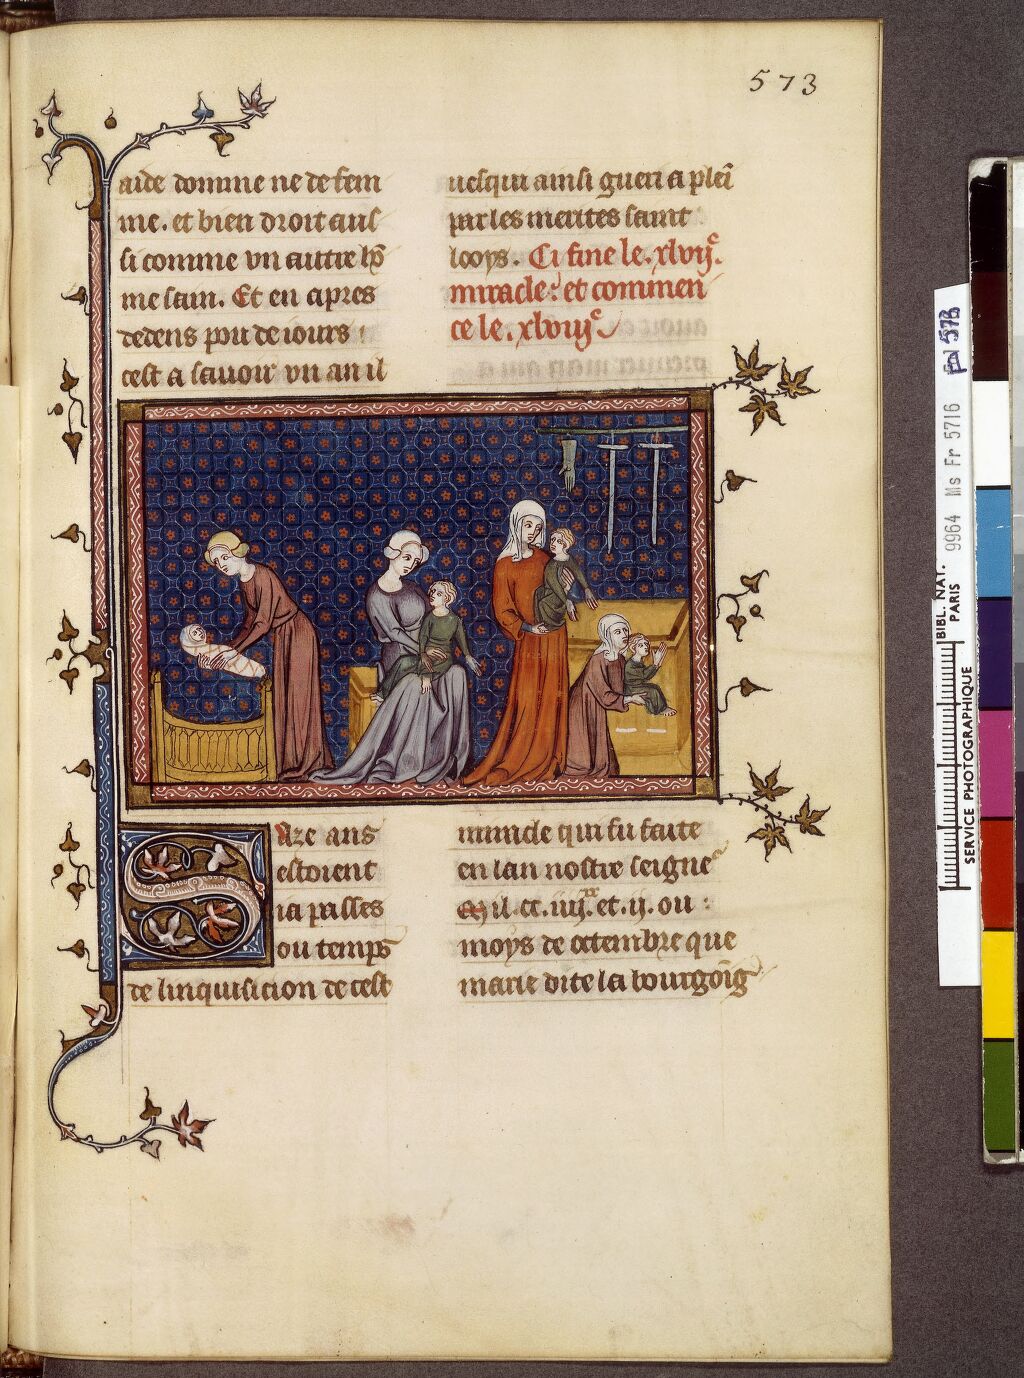 573
aide domme ne de fem
me. et bien droit aus
si comme vn autre hō
me sain. Et en apres
dedens pou de iours
cest a sauoir vn an il
uesqui ainsi gueri a pleī
par les merites saint
looys. Ci fine le .xlvijᵉ.
miracle: et commen
ce le .xlviijᵉ
Saze ans
estoient
ia passes
ou temps
de linquisicion de cest
miracle qui fu faite
en lan nostre seigneᵘʳ
Mil .cc. iiijˣˣ. et .ij. ou
moys de octembre que
marie dite la bourgōig
fol 573
9964 Ms Fr 5716
BIBL. NAT.
PARIS
SERVICE PHOTOGRAPHIQUE